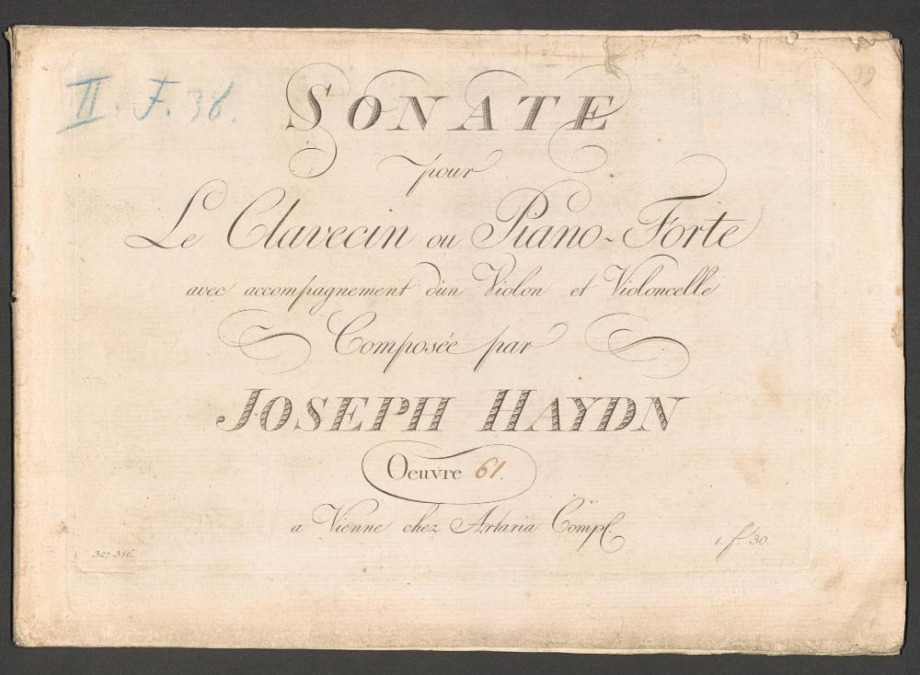 II. F. 38.
99
SONATE
pour
Le Clavecin ou Piano-Forte
avec accompagnement d'un Violon et Violoncelle
Composée par
JOSEPH HAYDN
Oeuvre 61.
a Vienne chez Artaria Comp.
1 f. 30.